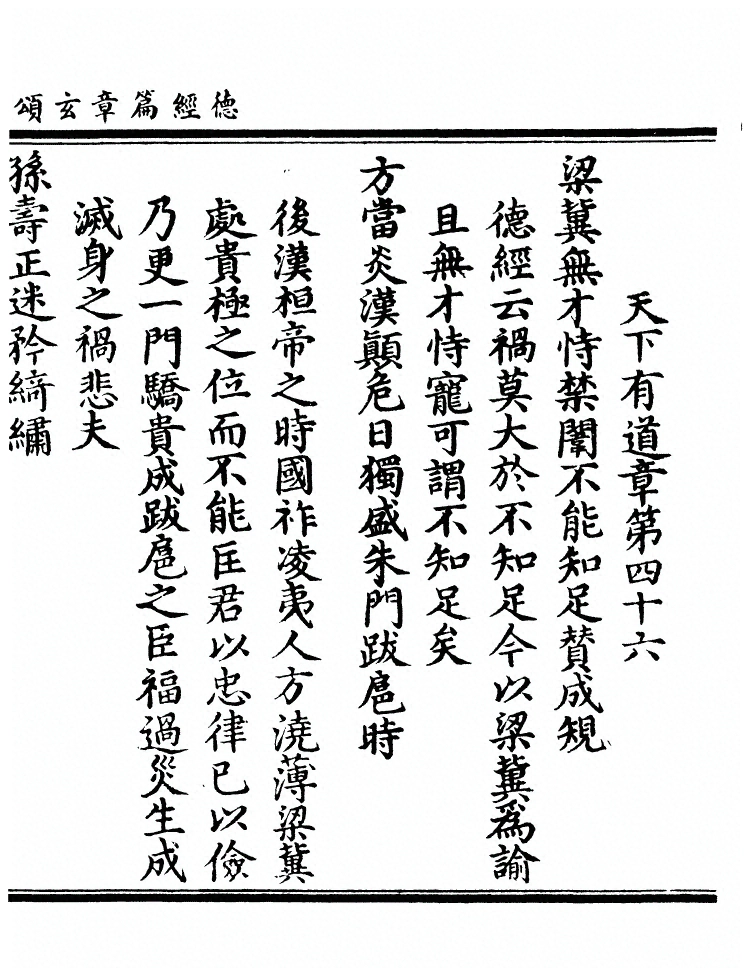 德經篇章玄頌
天下有道章第四十六
梁冀無才恃禁闈不能知足贊成䂓
德經云禍莫大於不知足今以梁冀爲諭
且無才恃寵可謂不知足矣
方當炎漢顚危日獨盛朱門跋扈時
後漢桓帝之時國祚凌夷人方澆薄梁冀
處貴極之位而不能匡君以忠律已以儉
乃更一門驕貴成跋扈之臣福過災生成
滅身之禍悲夫
孫壽正迷矜綺繡